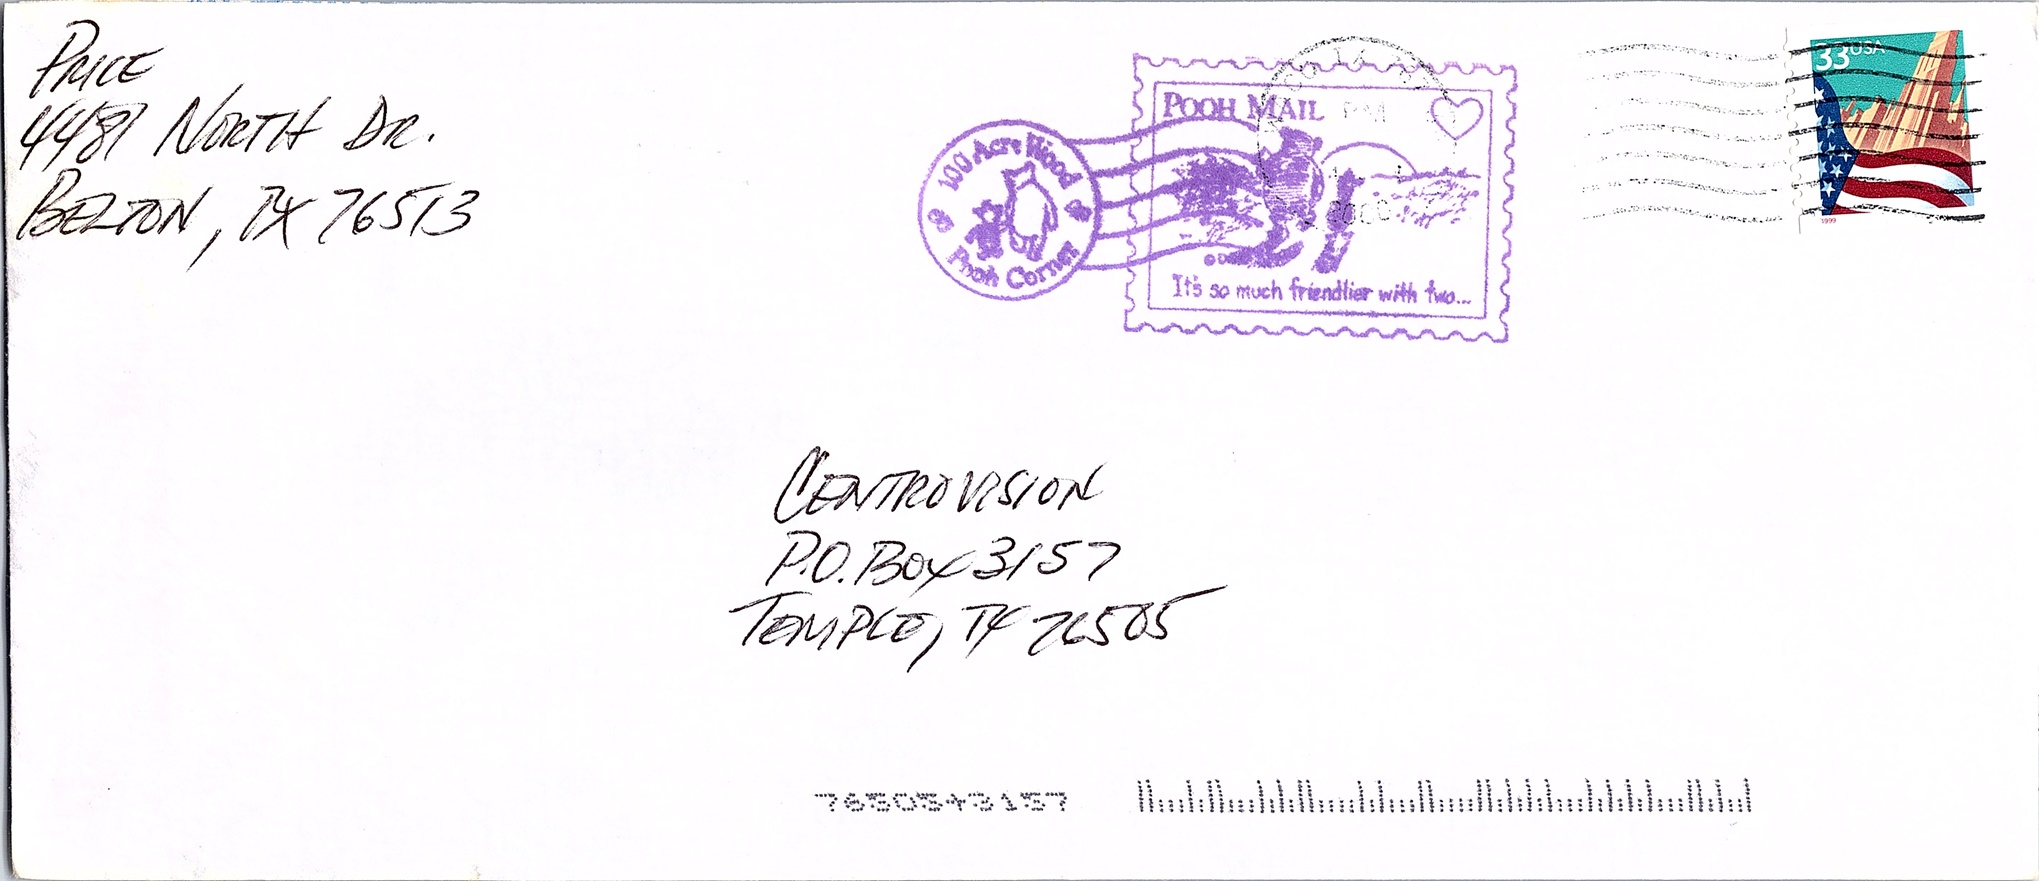 PRICE
4481 NORTH DR.
BELTON, TX 76513
POOH MAIL
PM
100 Acre Wood
Pooh Corner
2000
It's so much friendlier with two...
33USA
1999
CENTROVISION
P.O. BOX 3157
TEMPLE, TX 76505
7650543157